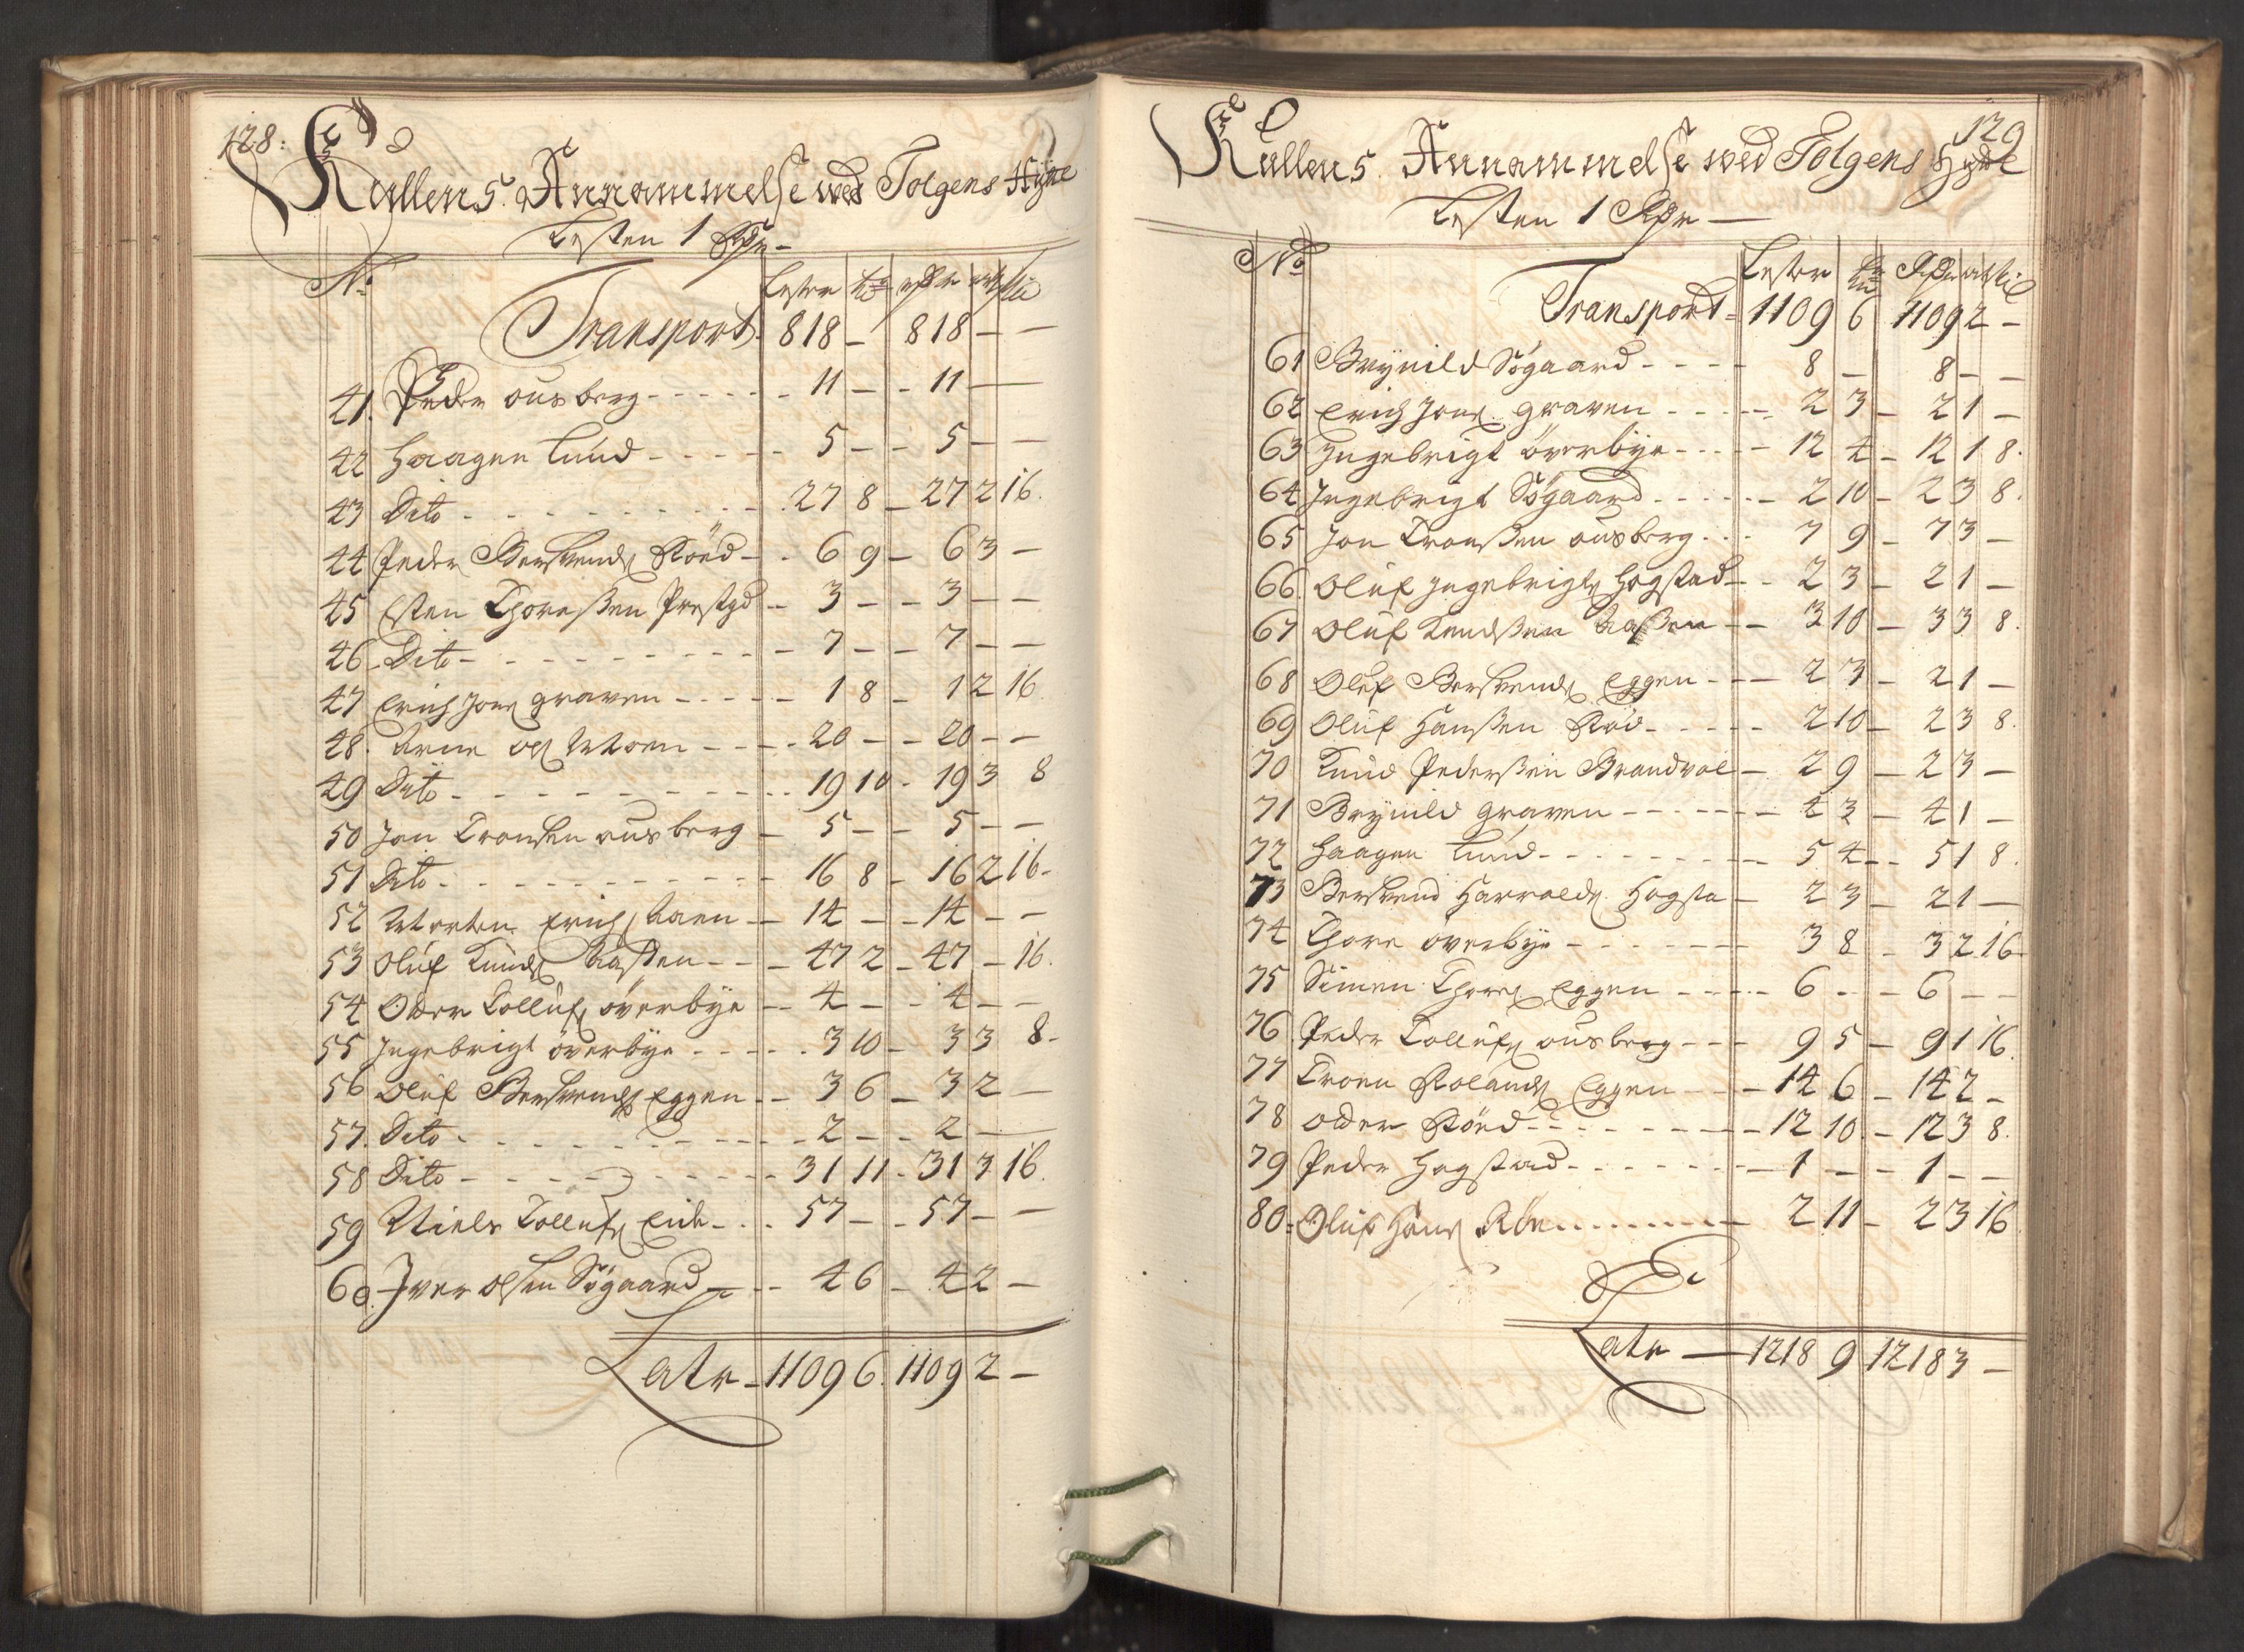 128:
Kullens Annammelse ved Tolgens Hytte
Lesten 1 Rdr –
No Lester tr Rdr ort sk
Transport 818 – 818 – –
41. Peder ousberg - - - - - - 11 – - 11 –
42 Haagen Lund - - - - - 5 – - 5 – –
43 Dito - - - - - - - - - 27 8 – 27 2 16.
44 Peder Berssvends Röed - - 6 9 – 6 3 –
45 Esten Thoreßen Prestgd – 3 – – 3 – –
46 Dito - - - - - - - - - 7 – – 7 – –
47 Erich Jons graven - - - - - 1 8 – 1 2 16
48. Arne ols Moen - - - - 20 – – 20 – –
49 Dito - - - - - - - - - 19 10 - 19 3 8
50 Jon Tronsen ousberg – 5 – – 5 – –
51 Dito - - - - - - - - - 16 8 – 16 2 16 -
52 Morten Erichs Aaen – 14 – – 14 – –
53 Oluf Knuds Aaßen - - - 47 2 – 47 – 16.
54 Oder Tollufs överbye – 4 – – 4 – –
55 Ingebrigt överbye - - - - - 3 10 – 3 3 8 -
56 Oluf Berssvends Eggen - - 3 6 – 3 2 –
57. Dito - - - - - - - - - 2 – – 2 –
58 Dito - - - - - - - - - 31 11 - 31 3 16.
59 Niels Tollufs Eid - - - 57 – – 57 – –
60. Iver olsen Sögaard – - - 4 6 – 4 2 –
Latr – 1109 6. 1109 2 –
129
Kullens Annammelse ved Tolgens Hytte
Lesten 1 Rdr –
No Lester tr Rdr ort skil
Transport – 1109 6 1109 2 –
61 Brynild Sögaard - - - - 8 – 8 – –
62 Erich Jons graven - - - - 2 3 – 2 1 –
63 Ingebrigt överbye - - - - 12 4 – 12 1 8.
64 Ingebrigt Sögaard - - - - - 2 10 – 2 3 8.
65 Jon Tronßen ousberg - - - 7 9 – 7 3 –
66. Oluf Ingebrigts Hogstad - - 2 3 – 2 1 –
67 Oluf Knudßen Aaßen – – 3 10 – 3 3 8.
68 Oluf Berssvends Eggen - - - 2 3 – 2 1 –
69 Oluf Hanßen Röd - - - - - 2 10 – 2 3 8.
70 Knud Pederßen Brandvol – 2 9 – 2 3 –
71 Brynild graven - - - - - - - 4 3 – 4 1 –
72 Haagen Lund - - - - - - - - - 5 4 – - 5 1 8.
73 Berssvend Harrolds Hogsta – 2 3 – 2 1 –
74 Thore överbye - - - - - - - 3 8 – 3 2 16 -
75 Simen Thores Eggen - - - - - 6 - - – 6 – –
76 Peder Tollufs ousberg - - - 9 5 – 9 1 16.
77 Troen Rolands Eggen - - - 14 6 – 14 2 –
78 Oder Röed - - - - - - - - 12 10 – 12 3 8.
79 Peder Hogstad - - - - - - - 1 – - 1 – –
80 - Oluf Hans Röe - - - - - - - - 2 11 – 2 3 16
Latr – 1218 9 1218 3 –